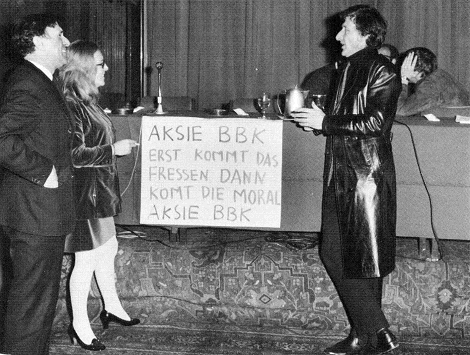 AKSIE BBK
ERST KOMMT DAS
FRESSEN DANN
KOMT DIE MORAL
AKSIE BBK